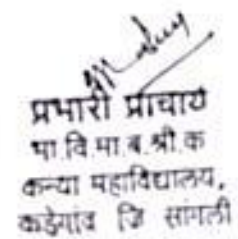 प्रभारी प्राचार्य
भा.वि.मा.ब.श्री.क
कन्या महाविद्यालय,
कडेगांव जि सांगली